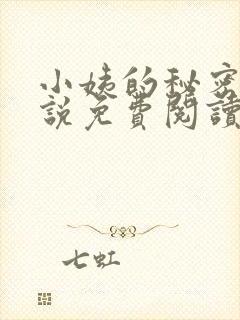 小姨的秘密
說免費閱讀
七虹